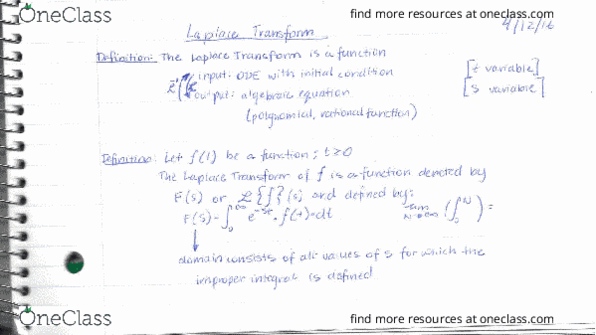 OneClass
find more resources at oneclass.com
Laplace Transform
4/12/16
Definition: The Laplace Transform is a function
input: ODE with initial condition [t variable]
output: algebraic equation [s variable]
(polynomial, rational function)
Definition: Let f(t) be a function; t≥0
The Laplace Transform of f is a function denoted by
F(s) or ℒ{f}(s) and defined by:
F(s) = ∫₀^∞ e^-st · f(t) dt lim N→∞ (∫₀^N) =
domain consists of all values of s for which the
improper integral is defined
OneClass
find more resources at oneclass.com